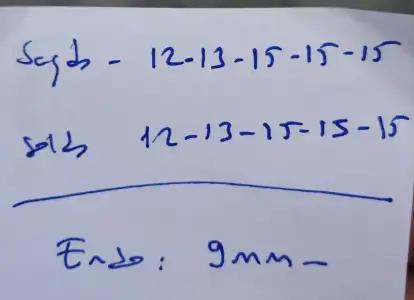 Sağda - 12-13-15-15-15
Solda 12-13-15-15-15
Endo: 9mm-